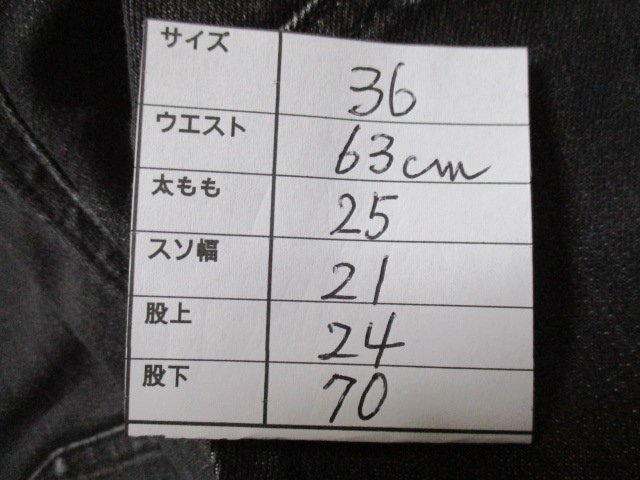 サイズ 36
ウエスト 63cm
太もも 25
スソ幅 21
股上 24
股下 70